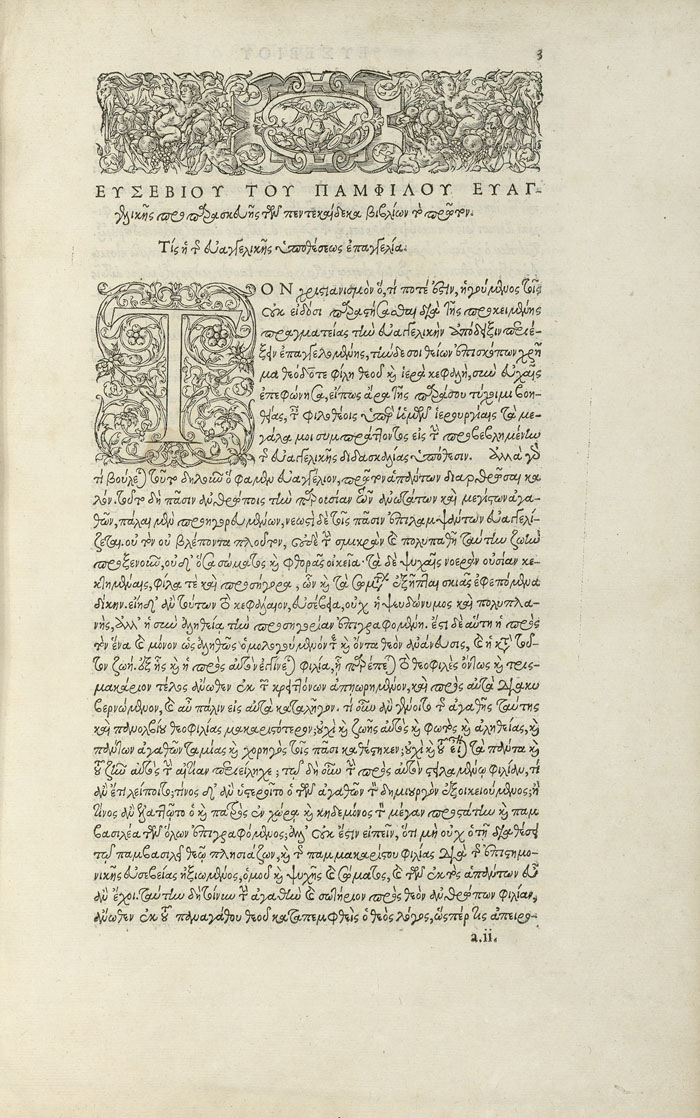 3
ΕΥΣΕΒΙΟΥ ΤΟΥ ΠΑΜΦΙΛΟΥ ΕΥΑΓ-
γελικῆς προπαρασκευῆς τῶν πεντεκαίδεκα βιβλίων τὸ πρῶτον.
Τίς ἡ τ͂ εὐαγγελικῆς ὑποθέσεως ἐπαγγελία.
ΤΟΝ χριστιανισμὸν ὅ, τι ποτέ ἐστιν, ἡγούμενος τοῖς
οὐκ εἰδόσι παραστήσασθαι διὰ τῆς προκειμένης
πραγματείας τὴν εὐαγγελικὴν ἀπόδειξιν περιέ-
ξειν ἐπαγγελομένης, τήνδε σοι θείων ἐπισκόπων χρῆ
μα θεόδοτε φίλη θεοῦ κ̀ ἱερὰ κεφαλὴ, σὺν εὐχαῖς
ἐπεφώνησα, εἴπως ἄρα τῆς παρὰ σου τύχοιμι βοη-
θείας, τ͂ φιλοθέοις ὑπὲρ ἡμῶν ἱερουργίαις τὰ με-
γάλα μοι συμπράττοντος εἰς τ̀ προβεβλημένην
τ͂ εὐαγγελικῆς διδασκαλίας ὑπόθεσιν. Ἀλλὰ γὸ
τί βούλε) τοῦτο δηλοῦν ὅ φαμεν εὐαγγέλιον, πρῶτον ἁπάντων διαρθρῶσαι κα
λόν. τοῦτο δὴ πᾶσιν ἀνθρώποις τὴν παρουσίαν τῶν ἀνωτάτων καὶ μεγίστων ἀγα-
θῶν, πάλαι μὲν προηγορευμένων, νεωστὶ δὲ τοῖς πᾶσιν ἐπιλαμψάντων εὐαγγελί-
ζεται. οὐ τὸν οὐ βλέποντα πλοῦτον, οὐδὲ τ̀ σμικρὰν καὶ πολυπαθῆ ταύτην ζωὴν
προξενοῦν, οὐδ' ὅσα σώματος κ̀ φθορᾶς οἰκεῖα. τὰ δὲ ψυχαῖς νοερὰν οὐσίαν κε-
κλημέναις, φίλα τε καὶ προσήγορα, ὧν κ̀ τὰ σωμάτων ἐξήπται σκιᾶς ἐφεπόμενα
δίκην. εἴη δ' ἂν τούτων τὸ κεφάλαιον, εὐσέβεια, οὐχ ἡ ψευδώνυμος καὶ πολυπλα-
νὴς, ἀλλ' ἡ σὺν ἀληθείᾳ τὴν προσηγορίαν ἐπιγραφομένη. ἔστι δὲ αὕτη ἡ πρὸς
τὸν ἕνα καὶ μόνον ὡς ἀληθῶς ὁμολογούμενόν τε κ̀ ὄντα θεὸν ἀνάνευσις, καὶ ἡ κτ̀ τοῦ-
τον ζωή. ἐξ ἧς κ̀ ἡ πρὸς αὐτὸν ἐγγίνε) φιλία, ᾗ πρέπε) τὸ θεοφιλὲς ὄντως κ̀ τρισ-
μακάριον τέλος ἄνωθεν ἐκ τ͂ κρειττόνων ἀπηωρημένον, καὶ πρὸς αὐτὰ διακυ
βερνώμενον, καὶ αὖ πάλιν εἰς αὐτὰ καταλῆγον. τί οὖν ἂν γένοιτο τ͂ ἀγαθῆς ταύτης
καὶ πανολβίου θεοφιλίας μακαριστότερον; οὐχὶ κ̀ ζωῆς αὐτὸς κ̀ φωτὸς κ̀ ἀληθείας, κ̀
πάντων ἀγαθῶν ταμίας κ̀ χορηγὸς τοῖς πᾶσι καθέστηκεν; οὐχὶ κ̀ τοῦ εἶ) τὰ πάντα κ̀
τοῦ ζῆν αὐτὸς τ̀ αἰτίαν περιείληφε; τῷ δὴ οὖν τ̀ πρὸς αὐτὸν στειλαμένῳ φιλίαν, τί
ἂν ἔτι λείποιτο; τίνος δ' ἂν ὑστεροῖτο ὁ τῶν ἀγαθῶν τ̀ δημιουργὸν ἐξοικειούμενος; ἢ
τίνος ἂν ἡττῷτο ὁ κ̀ πατρὸς ἐν χώρᾳ κ̀ κηδεμόνος τ̀ μέγαν προστάτην κ̀ παμ
βασιλέα τῶν ὅλων ἐπιγραφόμενος; ἀλλ' οὐκ ἔστιν εἰπεῖν, ὅτι μὴ οὐχ ὁ τῇ διαθέσει
τῷ παμβασιλεῖ θεῷ πλησιάζων, κ̀ τ͂ παμμακαρίστου φιλίας διὰ τ͂ ἐπιστημο-
νικῆς εὐσεβείας ἠξιωμένος, ὁμοῦ κ̀ ψυχῆς καὶ σώματος, καὶ τῶν ἐκτὸς ἁπάντων εὖ
ἂν ἔχοι. ταύτην δῆτ' οὖν τ̀ ἀγαθὴν καὶ σωτήριον πρὸς θεὸν ἀνθρώπων φιλίαν,
ἄνωθεν ἐκ τοῦ παναγάθου θεοῦ καταπεμφθεὶς ὁ θεὸς λόγος, ὥσπερ τις ἀπειρο-
a.ii.